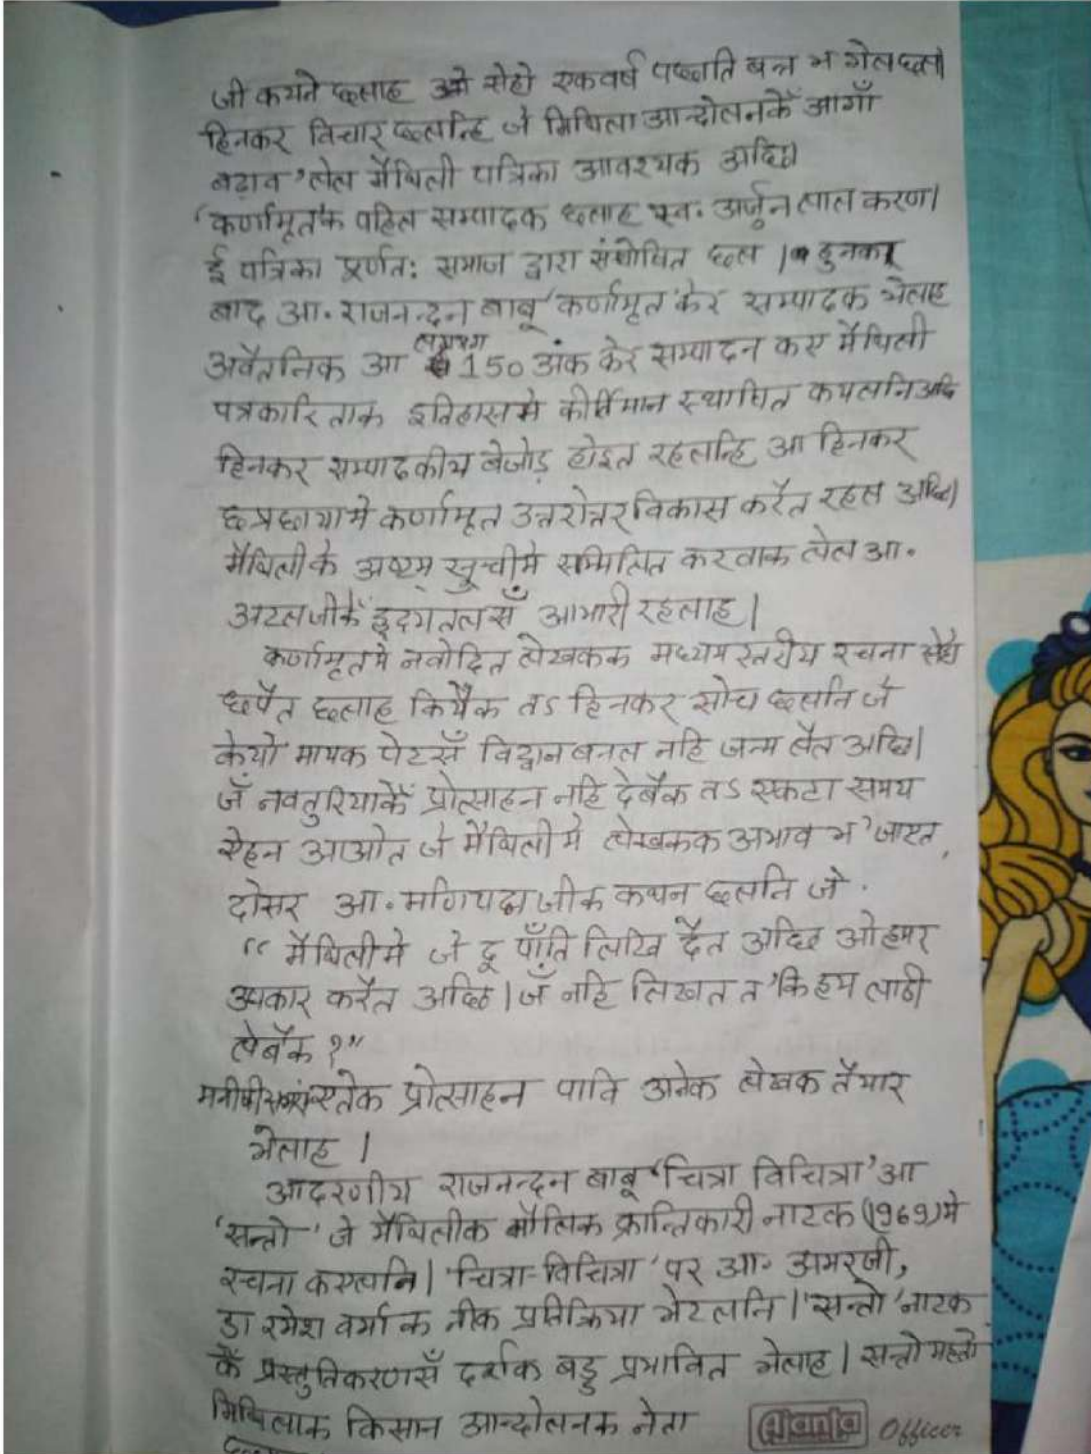 जी कयने छलाह ओ सेहो एक वर्ष पश्चाति बन्न भ गेल छल।
हिनकर विचार छलन्हि जे मिथिला आन्दोलनकेँ आगाँ
बढ़ाव 'लेल मैथिली पत्रिका आवश्यक अछि।
'कर्णामृत'क पहिल सम्पादक छलाह स्व. अर्जुन लाल करण।
ई पत्रिका पूर्णत: समाज द्वारा संपोषित छल । हुनकर
बाद आ. राजनन्दन बाबू 'कर्णामृत' केर सम्पादक भेलाह
अवैतनिक आ लगभग 150 अंक केर सम्पादन कए मैथिली
पत्रकारिताक इतिहासमे कीर्तिमान स्थापित कयलनि अछि
हिनकर सम्पादकीय बेजोड़ होइत रहलन्हि आ हिनकर
छत्रछायामे कर्णामृत उत्तरोत्तर विकास करैत रहल अछि।
मैथिलीके अष्टम् सूचीमे सम्मिलित करवाक लेल आ.
अटलजीकेँ हृदयतलसँ आभारी रहलाह ।
कर्णामृतमे नवोदित लेखकक मध्यम स्तरीय रचना सेहो
छपैत छलाह कियैक तऽ हिनकर सोच छलनि जे
केयो मायक पेटसँ विद्वान बनल नहि जन्म लैत अछि।
जँ नवतुरियाकेँ प्रोत्साहन नहि देबैक तऽ एकटा समय
एहन आओत जे मैथिलीमे लेखकक अभाव भ' जाएत,
दोसर आ. मणिपद्मजीक कथन छलनि जे .
"मैथिलीमे जे दू पाँति लिखि दैत अछि ओ हमर
उपकार करैत अछि । जँ नहि लिखत त' कि हम लाठी
लेबैक ?"
प्रोत्साहन पावि अनेक लेखक तैयार
भेलाह ।
आदरणीय राजनन्दन बाबू 'चित्रा विचित्रा' आ
'सन्तो' जे मैथिलीक मौलिक क्रान्तिकारी नाटक (1969) मे
रचना कएलनि। 'चित्रा-विचित्रा' पर आ. अमरजी,
डा रमेश वर्मा क नीक प्रतिक्रिया भेटलनि । 'सन्तो' नाटक
केँ प्रस्तुतिकरणसँ दर्शक बड्ड प्रभावित भेलाह । सन्तो महतो
मिथिलाक किसान आन्दोलनक नेता
Atanta Officer